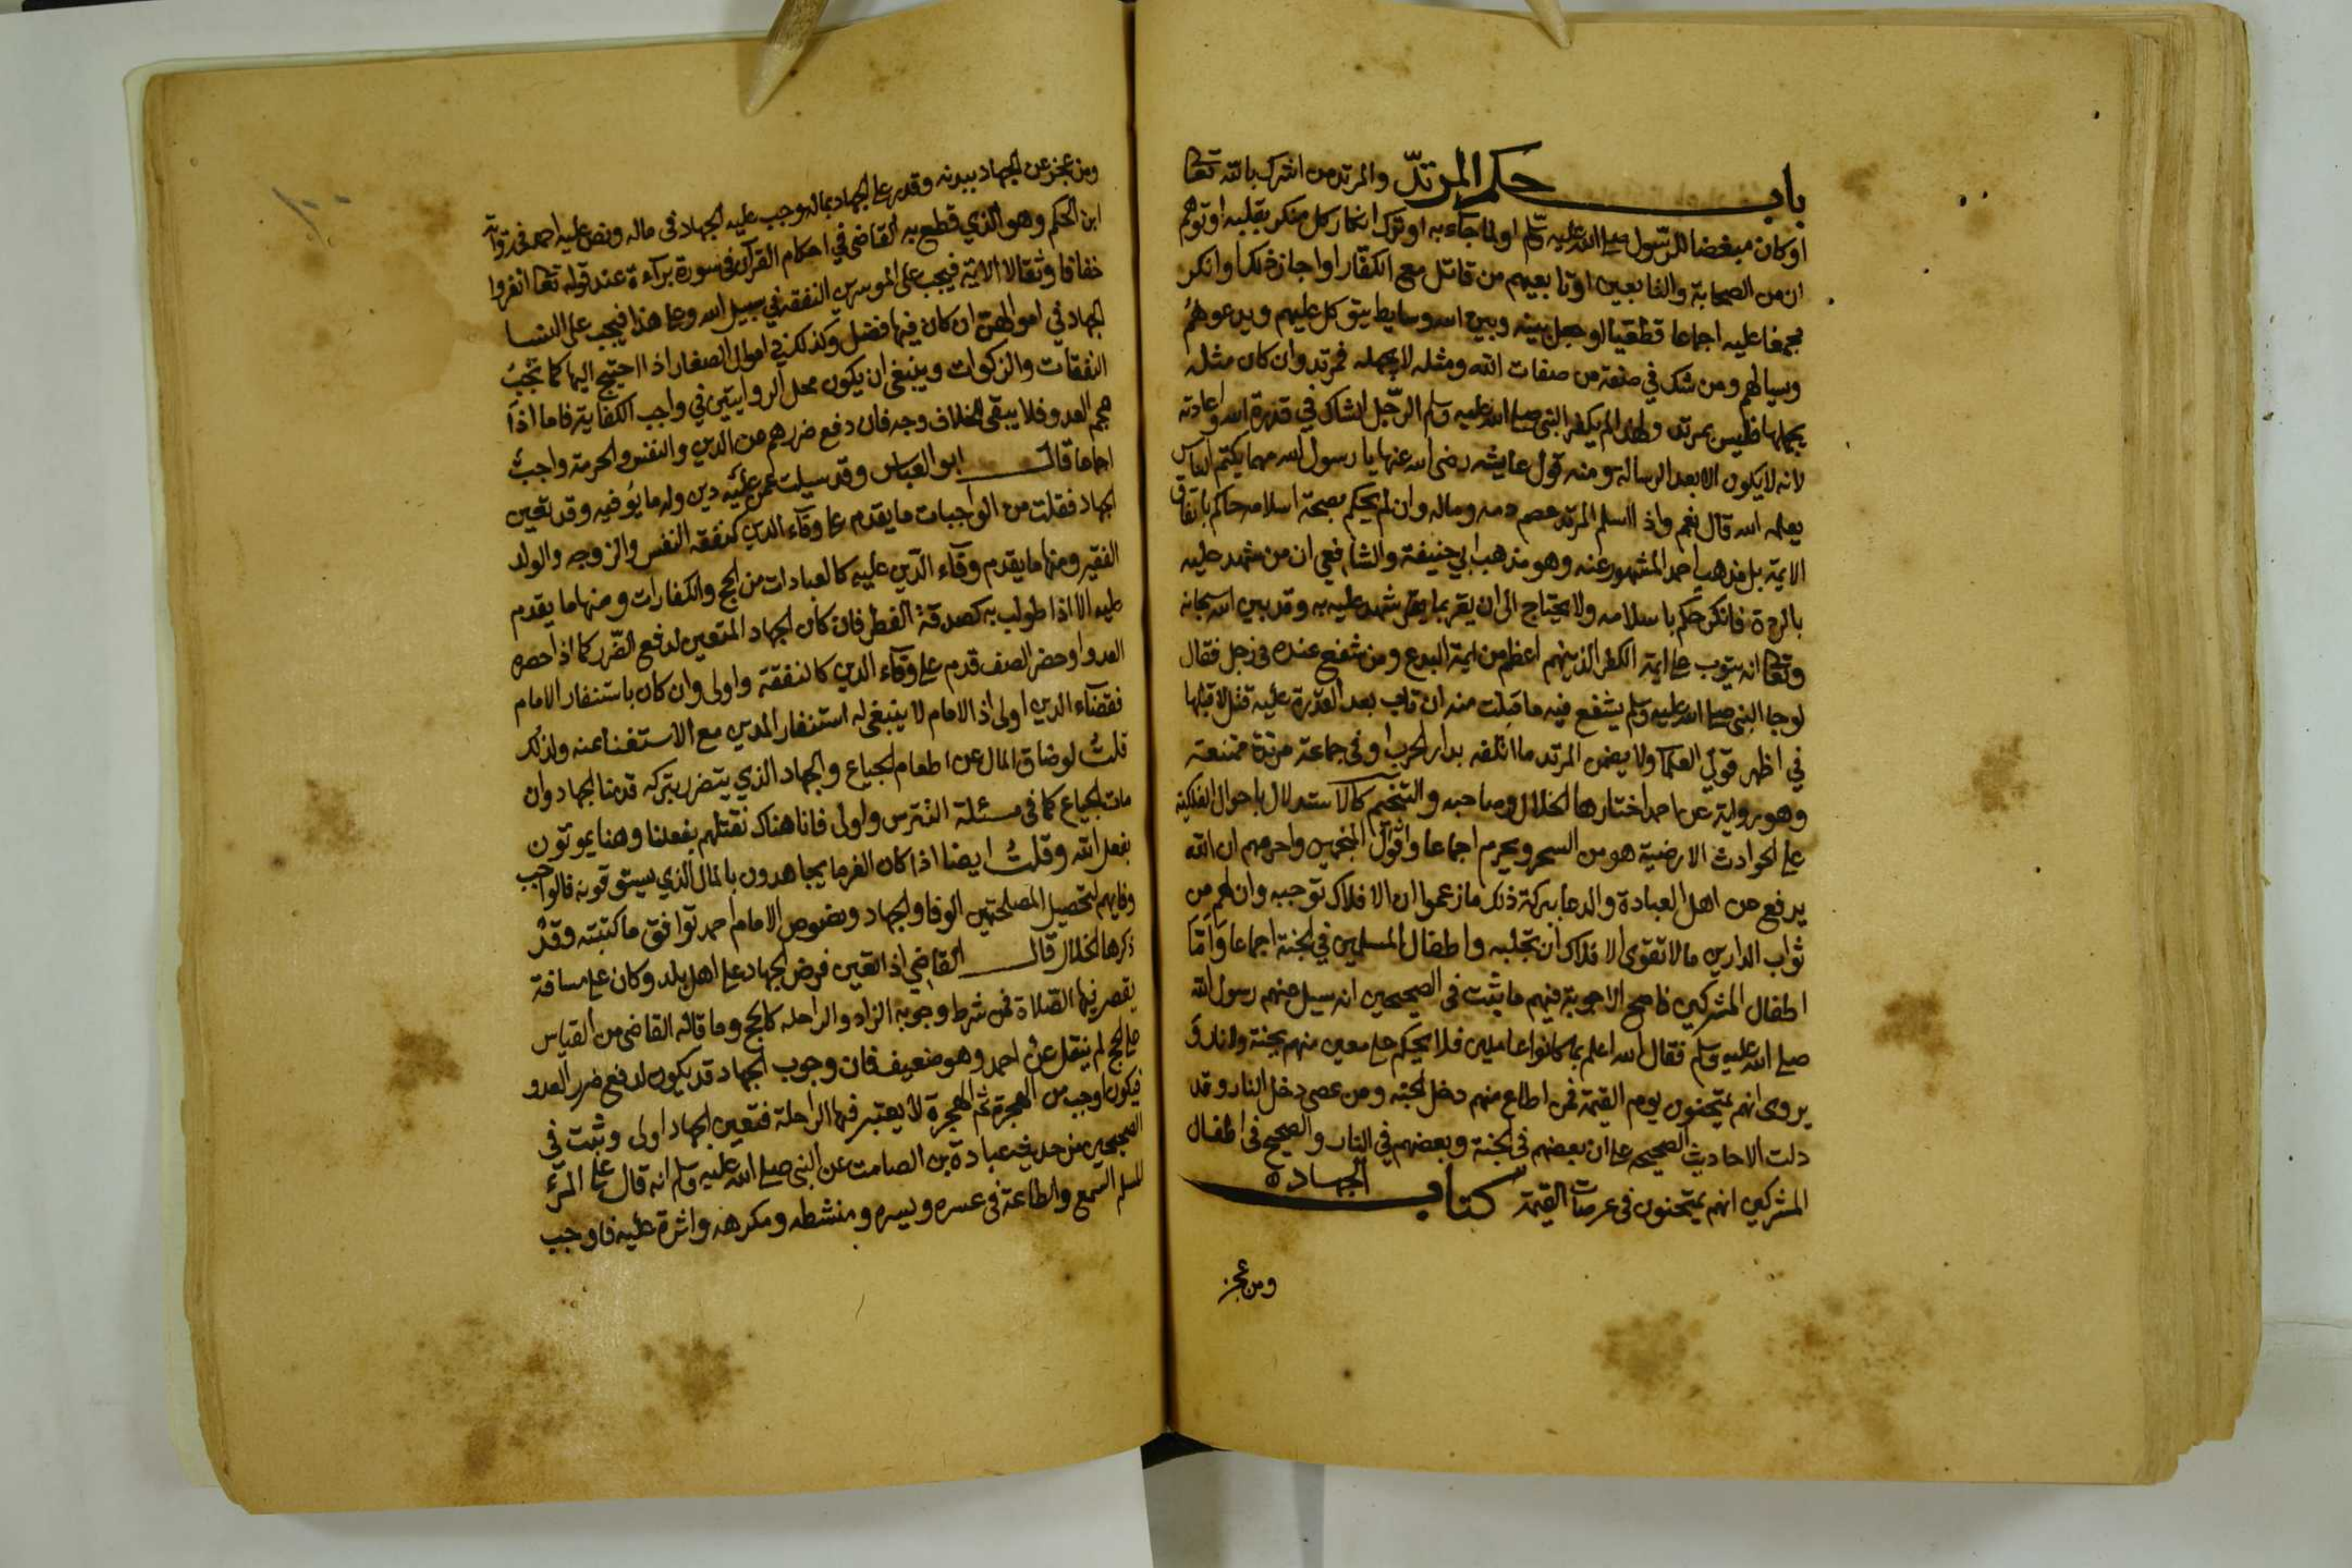 باب حكم المرتد والمرتد من اشرك بالله تعالى
اوكان مبغضا للرسول صلى الله عليه وسلم او لما جاء به او ترك انكار كل منكر بقلبه او توهم
ان من الصحابة والتابعين او تابعيهم من قاتل مع الكفار او اجاز ذلك او انكر
مجمعا عليه اجماعا قطعيا او جعل بينه وبين الله وسايط يتوكل عليهم ويدعوهم
وسيالهم ومن شك في صفة من صفات الله ومثله لا يجهله فمرتد وان كان مثله
يجهلها فليس بمرتد ولهذا لم يكفر النبي صلى الله عليه وسلم الرجل الشاك في قدرة الله واعادته
لانه لا يكون الا بعد الرسالة ومنه قول عايشه رضى الله عنها يا رسول الله مهما يكتم الناس
يعلمه الله قال نعم واذا اسلم المرتد عصم دمه وماله وان لم يحكم بصحة اسلامه حاكم باتفاق
الايمة بل مذهب احمد المشهور عنه وهو مذهب ابي حنيفة والشافعي ان من شهد عليه
بالردة فانكر حكم باسلامه ولا يحتاج الى ان يقر بما شهد عليه به وقد بين الله سبحانه
وتعالى انه يتوب على ايمة الكفر الذين هم اعظم من ايمة البدع ومن شفع عنده في رجل فقال
لوجا النبي صلى الله عليه وسلم يشفع فيه ما قبلت منه ان تاب بعد القدرة عليه قتل لا قبلها
في اظهر قولي العلما ولا يضمن المرتد ما اتلفه بدار الحرب او في جماعة مرتدة ممتنعة
وهو رواية عن احمد اختارها الخلال وصاحبه والتنجيم كالاستدلال باحوال الفلكية
على الحوادث الارضية هو من السحر ويحرم اجماعا واقول المنجمين واحرمهم ان الله
يدفع عن اهل العبادة والدعا ببركة ذلك ما زعموا ان الافلاك توجبه وان لهم من
ثواب الدارين ما لا تقوى الافلاك ان تجلبه واطفال المسلمين في الجنة اجماعا واما
اطفال المشركين فاصح الاجوبة فيهم ما يثبت في الصحيحين انه سيل عنهم رسول الله
صلى الله عليه وسلم فقال الله اعلم بما كانوا عاملين فلا يحكم على معين منهم بجنة ولا نار و
يروى انهم يمتحنون يوم القيمة فمن اطاع منهم دخل الجنة ومن عصى دخل النار وقد
دلت الاحاديث الصحيحه على ان بعضهم في الجنة وبعضهم في النار والصحيح في اطفال
المشركين انهم يمتحنون في عرصات القيمة كتاب الجهاد
ومن عجز
ومن عجز عن الجهاد ببدنه وقدر على الجهاد بماله وجب عليه الجهاد في ماله ونص عليه احمد في رواية
ابن الحكم وهو الذي قطع به القاضي في احكام القرآن في سورة براءة عند قوله تعالى انفروا
خفافا وثقالا الاية فيجب على الموسرين النفقة في سبيل الله وعلى هذا فيجب على النسا
الجهاد في اموالهن ان كان فيها فضل وكذلك في اموال الصغار اذا احتيج اليها كما تجب
النفقات والزكوات وينبغي ان يكون محل الروايتين في واجب الكفاية فاما اذا
هجم العدو فلا يبقى للخلاف وجه فان دفع ضررهم عن الدين والنفس والحرمة واجب
اجماعا قال ابو العباس وقد سيلت عمن عليه دين وله ما يوفيه وقد تعين
الجهاد فقلت من الواجبات ما يقدم على وفاء الدين كنفقة النفس والزوجه والولد
الفقير ومنها ما يقدم وفاء الدين عليه كالعبادات من الحج والكفارات ومنها ما يقدم
عليه الا اذا طولب به كصدقة الفطر فان كان الجهاد المتعين لدفع الضرر كما اذا حصره
العدو او حضر الصف قدم على وفاء الدين كالنفقة واولى وان كان باستنفار الامام
فقضاء الدين اولى اذ الامام لا ينبغي له استنفار المدين مع الاستغنا عنه ولذلك
قلت لو ضاق المال عن اطعام الجياع والجهاد الذي يتضرر بتركه قدمنا الجهاد وان
مات الجياع كما في مسئلة التترس واولى فانا هناك نقتلهم بفعلنا وهنا يموتون
بفعل الله وقلت ايضا اذا كان الغرما يجاهدون بالمال الذي يستوفونه فالواجب
وفايهم لتحصيل المصلحتين الوفا والجهاد ونصوص الامام احمد توافق ما كتبته وقد
ذكرها الخلال قال القاضي اذا تعين فرض الجهاد على اهل بلد وكان على مسافة
يقصر فيها الصلاة فمن شرط وجوبه الزاد والراحله كالحج وما قاله القاضي من القياس
على الحج لم ينقل عن احمد وهو ضعيف فان وجوب الجهاد قد يكون لدفع ضرر العدو
فيكون اوجب من الهجرة ثم الهجرة لا يعتبر فيها الراحلة فتعين الجهاد اولى وثبت في
الصحيحين من حديث عبادة بن الصامت عن النبي صلى الله عليه وسلم انه قال على المرء
المسلم السمع والطاعة في عسره ويسره ومنشطه ومكرهه واثرة عليه فاوجب